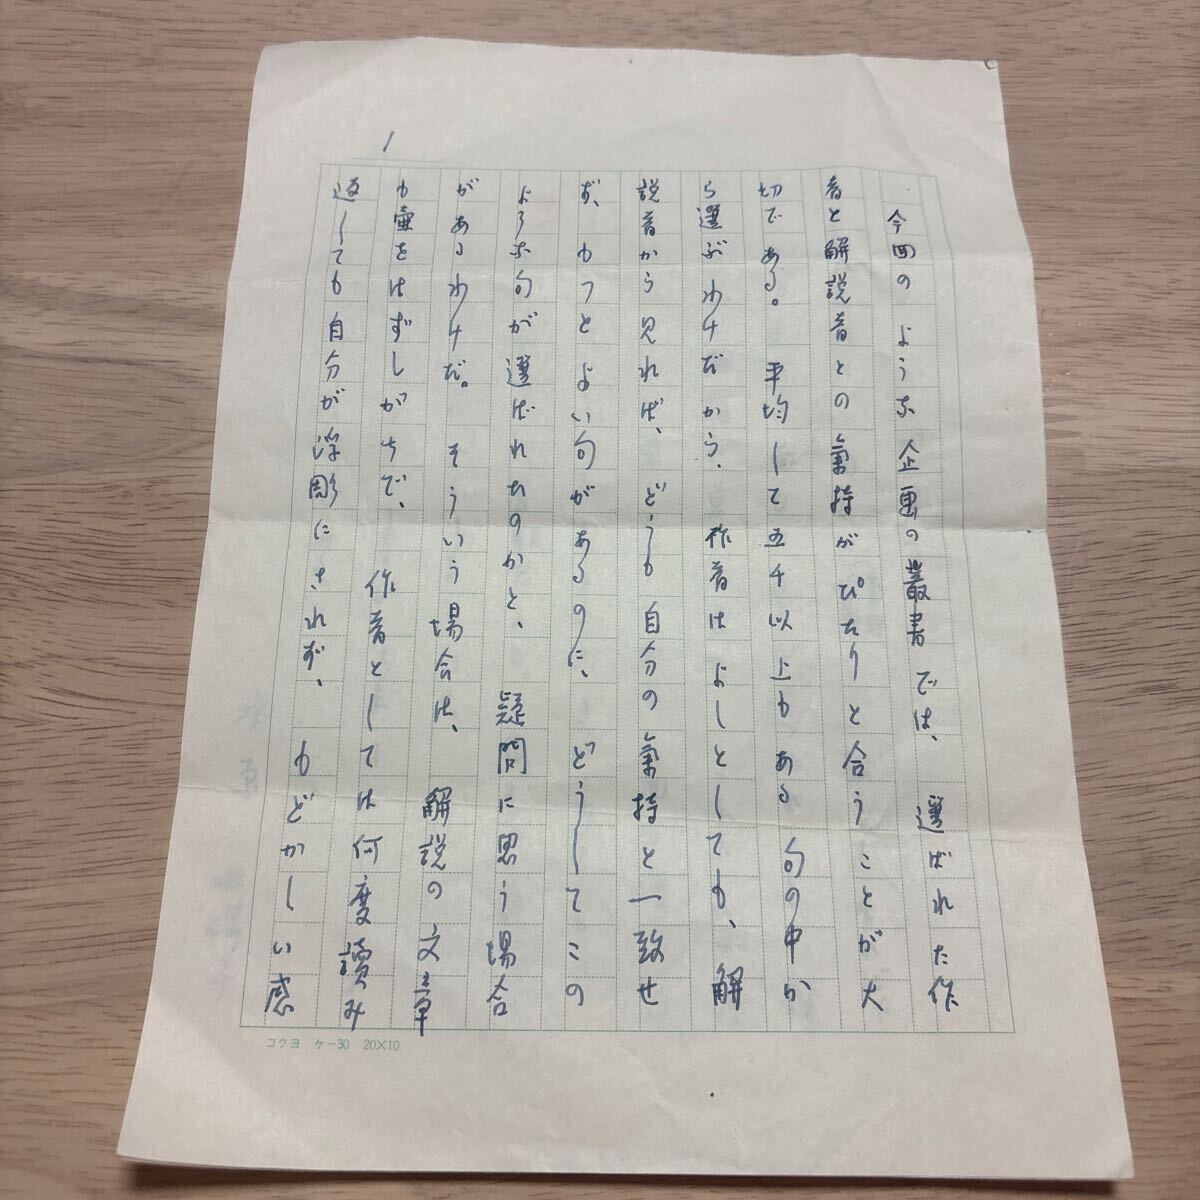 1
今回のような企画の叢書では、選ばれた作
者と解説者との氣持がぴたりと合うことが大
切である。平均して五千以上もある句の中か
ら選ぶわけだから、作者はよしとしても、解
説者から見れば、どうも自分の氣持と一致せ
ず、もっとよい句があるのに、どうしてこの
ような句が選ばれたのかと、疑問に思う場合
があるわけだ。そういう場合は、解説の文章
も壷をはずしがちで、作者としては何度讀み
返しても自分が浮彫にされず、もどかしい感
コクヨ ケー30 20×10